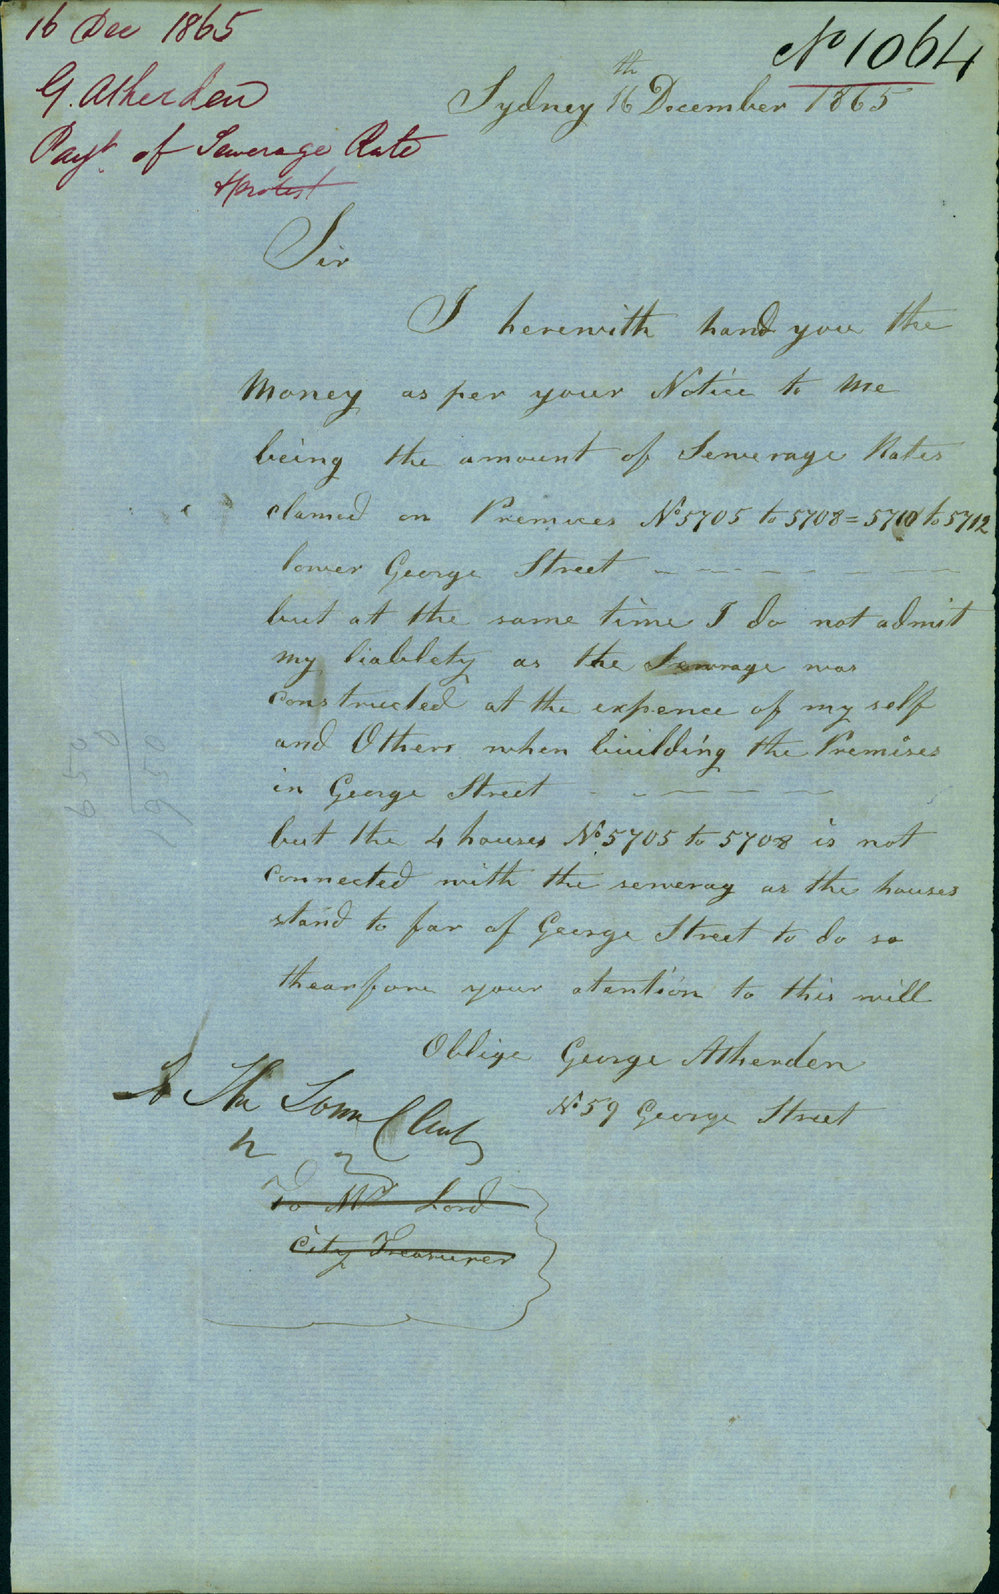 16 Dec 1865
G. Atherden
Payt. of Sewerage Rate
& protest
No 1064
Sydney 16th December 1865
Sir
I herewith hand you the
Money as per your Notice to Me
being the amount of Sewerage Rates
clamed on Premices No 5705 to 5708 = 5710 to 5712
lower George Street
but at the same time I do not admit
my liablety as the Sewrage was
constructed at the expence of my self
and Others when biulding the Premises
in George Street
but the 4 houses No 5705 to 5708 is not
connected with the seweray as the houses
stand to far of George Street to do so
thearfore your atention to this will
Oblige George Atherden
No 59 George Street
To The Town Clerk
To Mr Lord
City Treasurer
650
1950